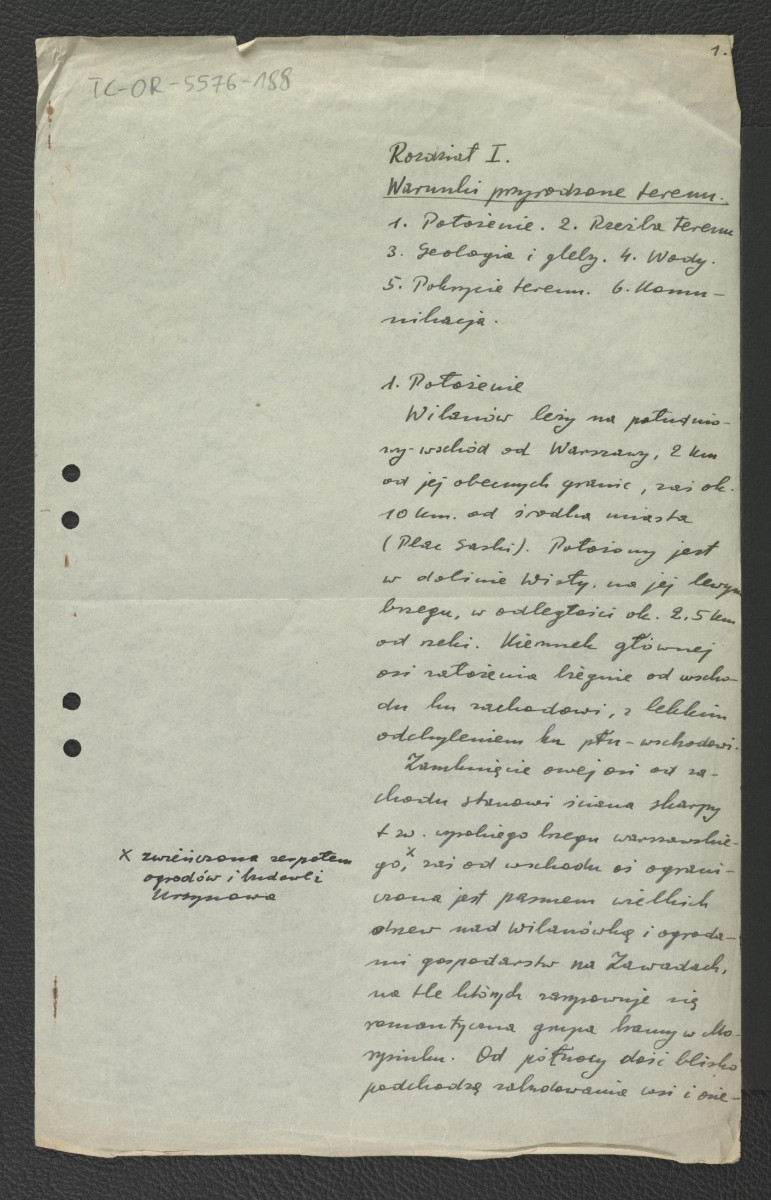 1.
TC-OR-5576-188
Rozdział I.
Warunki przyrodzone terenu.
1. Położenie. 2. Rzeźba terenu
3. Geologia i gleby. 4. Wody.
5. Pokrycie terenu. 6. Komu-
nikacja.
1. Położenie
Wilanów leży na południo-
wy-wschód od Warszawy, 2 km
od jej obecnych granic, zaś ok.
10 km. od środka miasta
(Plac Saski). Położony jest
w dolinie Wisły, na jej lewym
brzegu, w odległości ok. 2,5 km
od rzeki. Kierunek głównej
osi założenia biegnie od wscho-
du ku zachodowi, z lekkim
odchyleniem ku płn-wschodowi.
Zamknięcie owej osi od za-
chodu stanowi ściana skarpy
t zw. wysokiego brzegu warszawskie-
go,x zaś od wschodu oś ograni-
czona jest pasmem wielkich
drzew nad Wilanówką i ogroda-
mi gospodarstw na Zawadach,
na tle których zarysowuje się
romantyczna grupa bramy w Mo-
rysinku. Od północy dość blisko
podchodzą zabudowania wsi i osie-
x zwieńczona zespołem
ogrodów i budowli
Ursynowa